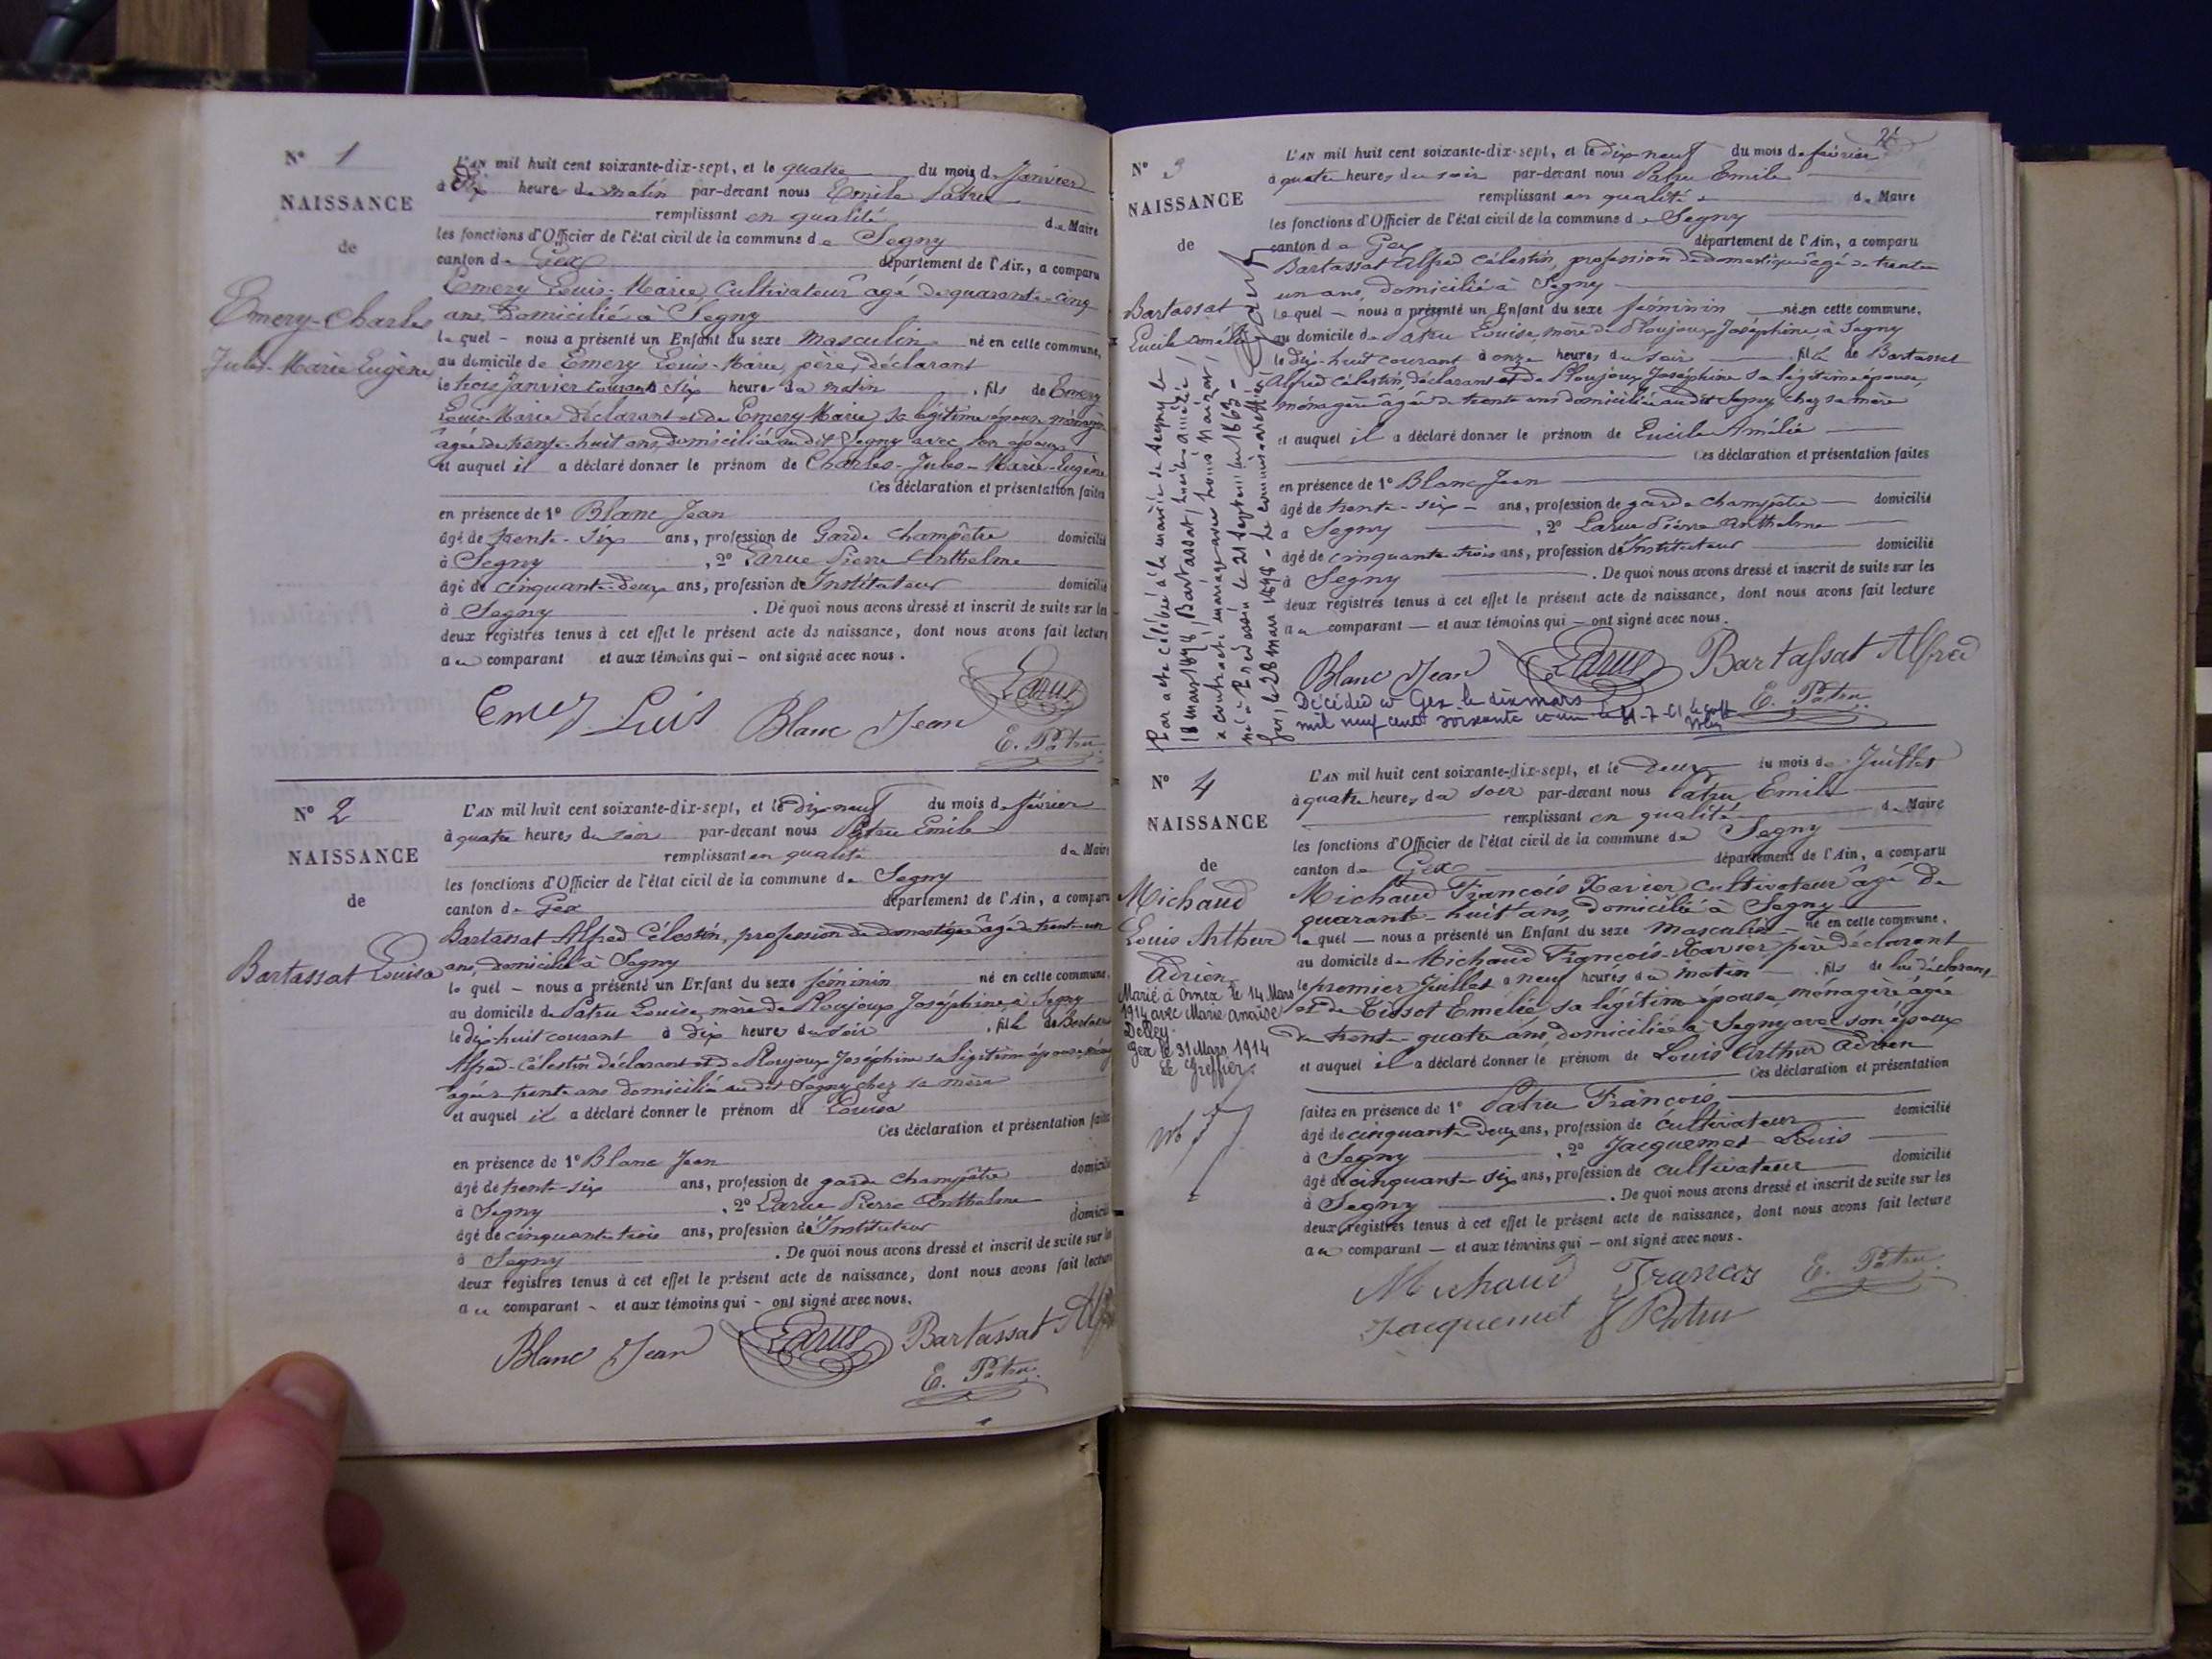 N° 1
NAISSANCE
de
Emery Charles
Jules-Marie Eugène
L'AN mil huit cent soixante-dix-sept, et le quatre du mois de Janvier
à dix heures du matin par-devant nous Emile Patru
remplissant en qualité de Maire
les fonctions d'Officier de l'état civil de la commune de Segny
canton de Gex département de l'Ain, a comparu
Emery Louis-Marie, Cultivateur âgé de quarante-cinq
ans, domicilié à Segny
lequel – nous a présenté un Enfant du sexe Masculin né en cette commune,
au domicile de Emery Louis-Marie, père, déclarant
le trois janvier courant à six heures du matin, fils de Emery
Louis-Marie déclarant et de Emery Marie, sa légitime épouse, ménagère
âgée de trente-huit ans, domiciliée au dit Segny avec son époux
et auquel il a déclaré donner le prénom de Charles-Jules-Marie-Eugène
Ces déclaration et présentation faites
en présence de 1° Blanc Jean
âgé de trente-six ans, profession de Garde Champêtre domicilié
à Segny, 2° Larue Pierre Anthelme
âgé de cinquante-deux ans, profession de Instituteur domicilié
à Segny. De quoi nous avons dressé et inscrit de suite sur les
deux registres tenus à cet effet le présent acte de naissance, dont nous avons fait lecture
au comparant et aux témoins qui – ont signé avec nous.
Emery Luis Blanc Jean Larue
E. Patru
N° 2
NAISSANCE
de
Bartassat Louisa
L'AN mil huit cent soixante-dix-sept, et le dix-neuf du mois de février
à quatre heures du soir par-devant nous Patru Emile
remplissant en qualité de Maire
les fonctions d'Officier de l'état civil de la commune de Segny
canton de Gex département de l'Ain, a comparu
Bartassat Alfred Célestin, profession de domestique âgé de trente-un
ans, domicilié à Segny
lequel – nous a présenté un Enfant du sexe féminin né en cette commune,
au domicile de Patru Louise, mère de Ploujoux Joséphine, à Segny
le dix-huit courant à dix heures du soir, fille de Bartassat
Alfred-Célestin déclarant et de Ploujoux Joséphine sa légitime épouse
âgée de trente ans domiciliée au dit Segny chez sa mère
et auquel il a déclaré donner le prénom de Louisa
Ces déclaration et présentation faites
en présence de 1° Blanc Jean
âgé de trente-six ans, profession de garde champêtre domicilié
à Segny, 2° Larue Pierre Anthelme
âgé de cinquante-trois ans, profession de Instituteur domicilié
à Segny. De quoi nous avons dressé et inscrit de suite sur les
deux registres tenus à cet effet le présent acte de naissance, dont nous avons fait lecture
au comparant – et aux témoins qui – ont signé avec nous.
Blanc Jean Larue Bartassat Alfred
E. Patru
N° 3
NAISSANCE
de
Bartassat
Lucile Amélie
Par acte célébré à la mairie de Segny le
18 mars 1898, Bartassat, Lucile Amélie
a contracté mariage avec Louis
né à le 21 septembre 1863 –
Gex, le 28 mars 1898 – Le commis-greffier
L'AN mil huit cent soixante-dix-sept, et le dix-neuf du mois de février
à quatre heures du soir par-devant nous Patru Emile
remplissant en qualité de Maire
les fonctions d'Officier de l'état civil de la commune de Segny
canton de Gex département de l'Ain, a comparu
Bartassat Alfred Célestin, profession de domestique âgé de trente
un ans, domicilié à Segny
lequel – nous a présenté un Enfant du sexe féminin né en cette commune,
au domicile de Patru Louise, mère de Ploujoux Joséphine, à Segny
le dix-huit courant à onze heures du soir, fille de Bartassat
Alfred Célestin, déclarant et de Ploujoux Joséphine sa légitime épouse,
ménagère âgée de trente ans domiciliée au dit Segny chez sa mère
et auquel il a déclaré donner le prénom de Lucile Amélie
Ces déclaration et présentation faites
en présence de 1° Blanc Jean
âgé de trente-six – ans, profession de garde champêtre – domicilié
à Segny, 2° Larue Pierre Anthelme
âgé de cinquante-trois ans, profession de Instituteur domicilié
à Segny. De quoi nous avons dressé et inscrit de suite sur les
deux registres tenus à cet effet le présent acte de naissance, dont nous avons fait lecture
au comparant – et aux témoins qui – ont signé avec nous.
Blanc Jean Larue Bartassat Alfred
E. Patru
Décédée à Gex le dix mars
mil neuf cent soixante et un
N° 4
NAISSANCE
de
Michaud
Louis Arthur
Adrien
Marié à Ornex le 14 Mars
1914 avec Marie Anaïse
Gex le 31 Mars 1914
Le Greffier.
L'AN mil huit cent soixante-dix-sept, et le Deux du mois de Juillet
à quatre heures du soir par-devant nous Patru Emile
remplissant en qualité de Maire
les fonctions d'Officier de l'état civil de la commune de Segny
canton de Gex département de l'Ain, a comparu
Michaud François Xavier, cultivateur âgé de
quarante-huit ans, domicilié à Segny
lequel – nous a présenté un Enfant du sexe Masculin – né en cette commune,
au domicile de Michaud François-Xavier père déclarant
le premier Juillet à neuf heures du matin, fils de lui déclarant
et de Tissot Emélie sa légitime épouse, ménagère, âgée
de trente-quatre ans, domiciliée à Segny avec son époux
et auquel il a déclaré donner le prénom de Louis Arthur Adrien
Ces déclaration et présentation
faites en présence de 1° Patru François
âgé de cinquante-deux ans, profession de cultivateur domicilié
à Segny, 2° Jacquemet Louis
âgé de cinquante-six ans, profession de cultivateur domicilié
à Segny. De quoi nous avons dressé et inscrit de suite sur les
deux registres tenus à cet effet le présent acte de naissance, dont nous avons fait lecture
au comparant – et aux témoins qui – ont signé avec nous.
Michaud Francois E. Patru
Jacquemet F Patru